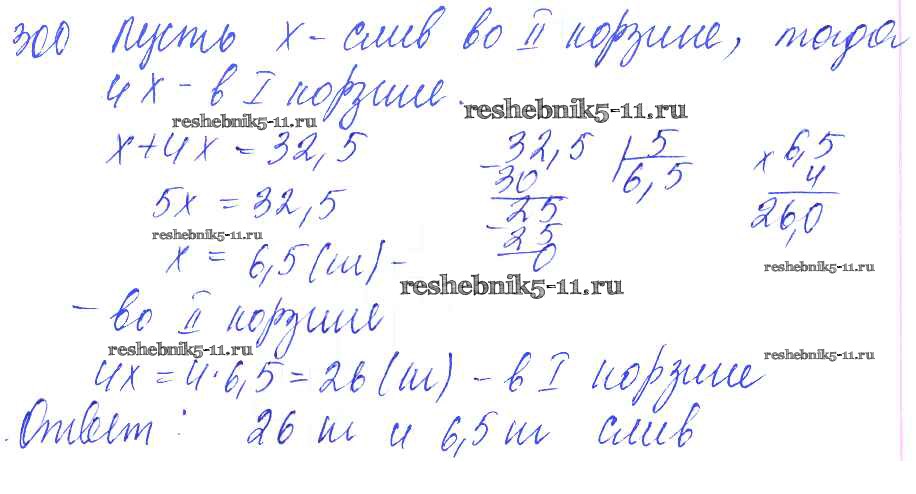 300 Пусть x - слив во II корзине, тогда
4x - в I корзине.
reshebnik5-11.ru
reshebnik5-11.ru
x+4x = 32,5
5x = 32,5
reshebnik5-11.ru
x = 6,5 (кг) -
- во II корзине
32,5 | 5
- 30 6,5
25
- 25
0
x 6,5
4
26,0
reshebnik5-11.ru
reshebnik5-11.ru
reshebnik5-11.ru
reshebnik5-11.ru
4x = 4·6,5 = 26 (кг) - в I корзине
Ответ: 26 кг и 6,5 кг слив